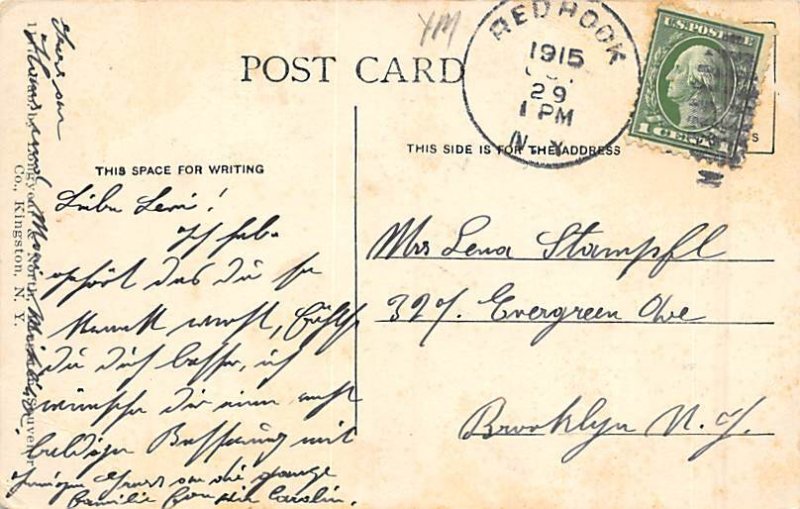 POST CARD
THIS SPACE FOR WRITING
THIS SIDE IS FOR THE ADDRESS
RED HOOK
1915
29
1 PM
N.Y.
U.S. POSTAGE
1 CENT
YM
Liebe Leni!
Ich habe
gehört das du so
krank warst, fühlst
du dich besser, ich
wünsche dir eine recht
baldige Besserung mit
Gruss an die ganze
Familie von Carolin.
Mrs Lena Stampfl
327. Evergreen Ave
Brooklyn N.Y.
Co., Kingston, N. Y.